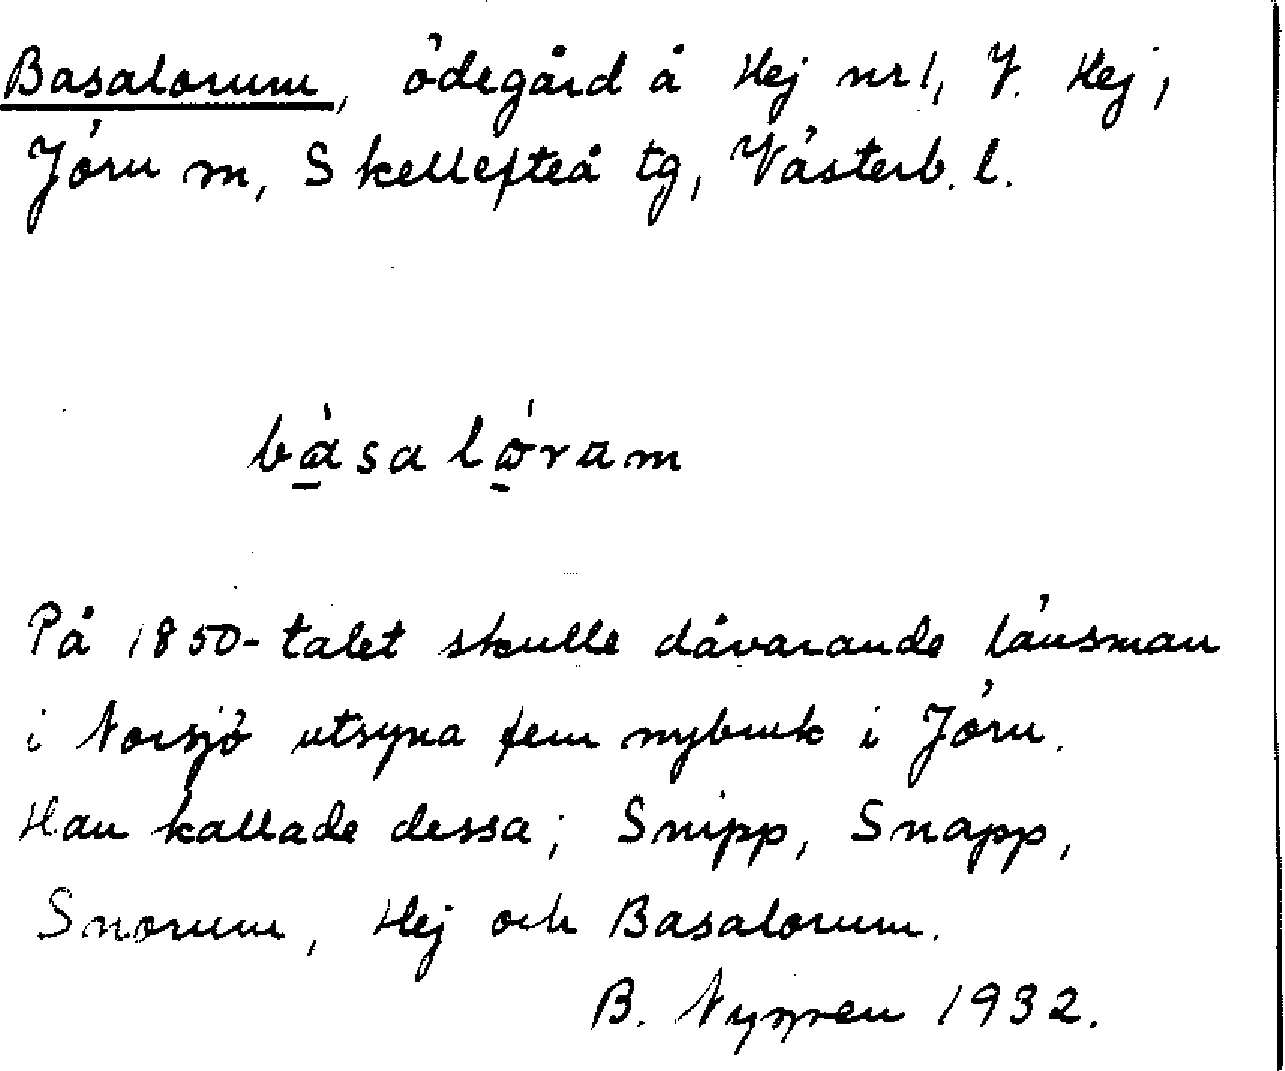 Basalorum, ödegård å Hej nr 1, V. Hej,
Jörn m, Skellefteå tg, Västerb. l.
bàsa lóram
På 1850-talet skulle dåvarande länsman
i Norsjö utsyna fem nybruk i Jörn.
Han kallade dessa; Snipp, Snapp,
Snorum, Hej och Basalorum.
B. 1932.